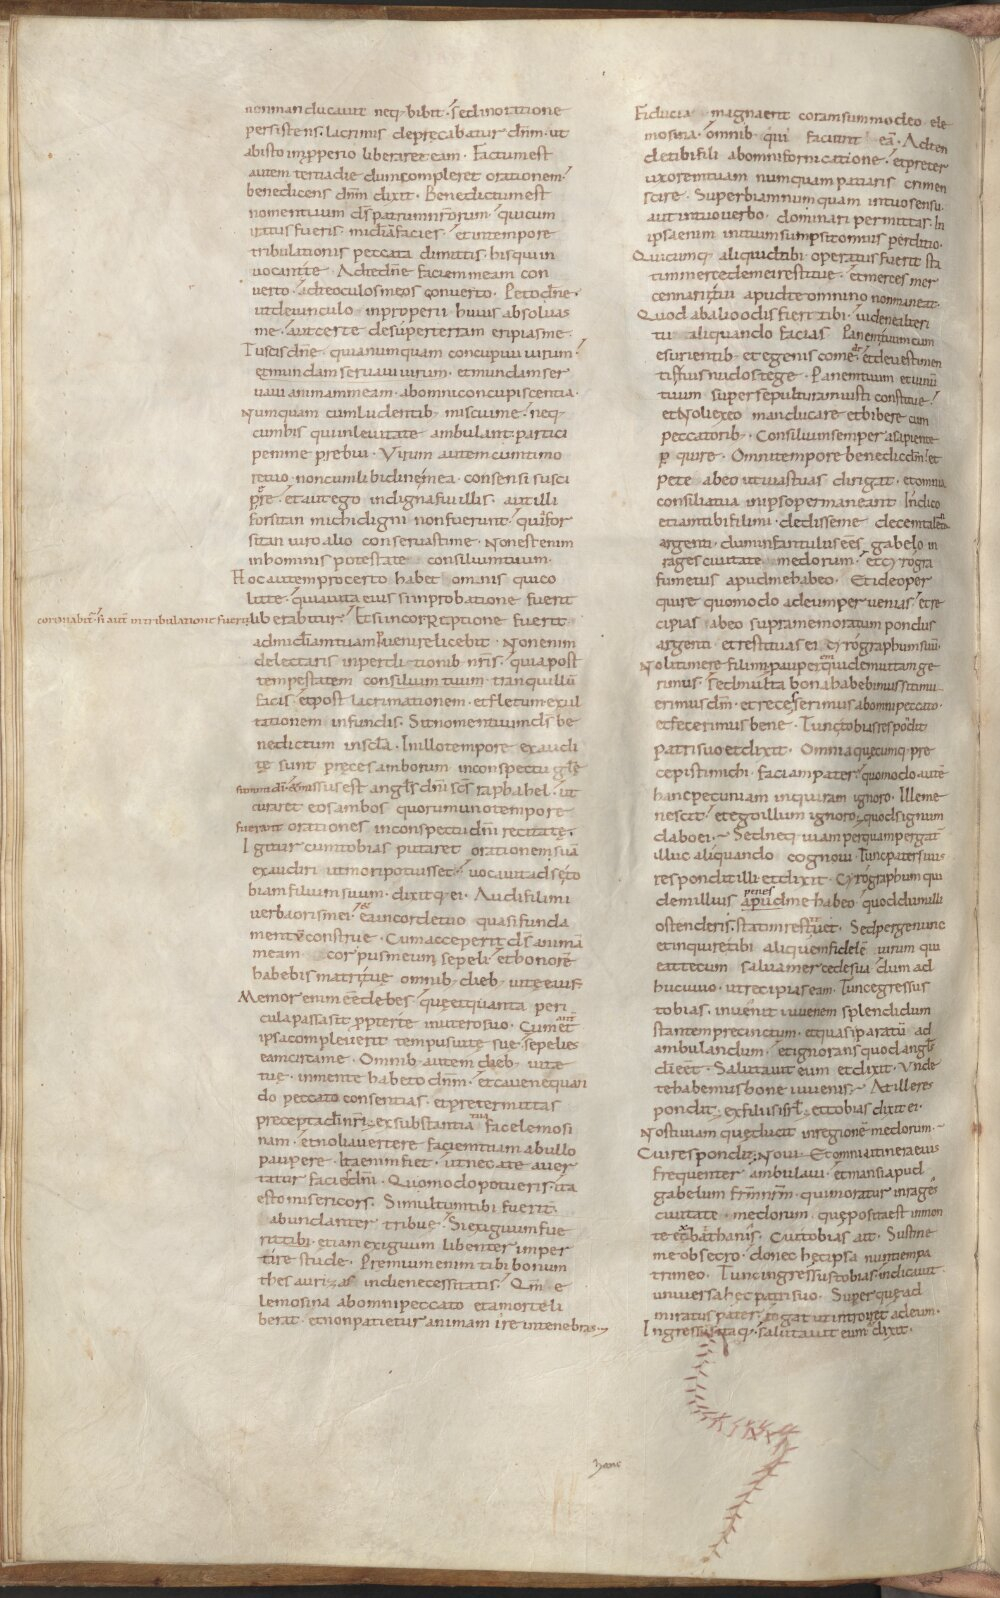 nonmanducauit neq; bibit. sedinoratione
persistens. lacrimis deprecabatur dnm. ut
abistoimpperio liberareteam. Factumest
autem tertiadie dumcompleret orationem.
benedicens dnm dixit. Benedictumest
nomentuum ds patrumnrorum. quicum
iratus fueris. midiafacies. etintempore
tribulationis peccata dimittis. hisquiin
uocante. Adtedne faciemmeam con
uerto. adteoculosmeos conuerto. Petodne.
utdeuinculo inproperii huius absoluas
me. autcerte desuperterram eripiasme.
Tuscisdne. quianumquam concupiui uirum.
etmundamseruaui uirum. etmundamser
uaui animammeam. abomniconcupiscentia.
Numquam cumludentib; miscuime. neq;
cumhis quiinleuitate ambulant. partici
pemme prebui. Virum autemcumtimo
retuo. noncumlibidinemea. consensi susci
pre. etautego indignafuiillis. autilli
forsitan michidigni nonfuerunt. quifor
sitan uiro alio conseruastime. Nonestenim
inhominis potestate consiliumtuum.
Hocautemprocerto habet omnis quico
litte. quiauita eius siinprobatione fuerit
coronabit. siaut intribulatione fuerit
liberabitur. Etsiincorreptione fuerit.
admidiamtuamuenirelicebit. Nonenim
delectaris inperditionib; nris. quiapost
tempestatem consilium tuum tranquillu
facis. etpost lacrimationem. etfletumexul
tationem infundis. Sitnomentuumds be
nedictum inscla. Inillotempore exaudi
te sunt preces amborum inconspectu gle
summi di. etmissusest angls dni scs raphahel. ut
curaret eosambos quorumunotempore
fuerant orationes inconspectu dni recitate.
Igitur cumtobias putaret orationemsua
exaudiri utmoripotuisset. uocauitadseto
biamfiliumsuum. dixitq; ei. Audifilimi
uerbaorismei. eaincordetuo quasifunda
mentu construe. Cumacceperit ds anima
meam corpusmeum sepeli. ethonore
habebismatritue omnib; dieb; uiteeius.
Memor enimeedebes. queetquanta peri
culapassasit ppterte inuterosuo. Cumaut et
ipsacompleuerit tempusuite sue. sepelies
eamcircame. Omnib; autem dieb; uite
tue. inmente habeto dnm. etcauenequan
do peccato consentias. etpretermittas
preceptadinri. exsubstantia tua facelemosi
nam. etnoliauertere faciemtuam abullo
paupere. Itaenimfiet. utnecate auer
tatur faciesdni. Quomodopotueris. ita
estomisericors. Simultumtibi fuerit.
abundanter tribue. Siexiguumfue
rittibi. etiamexiguum libenter imper
tire stude. Premiumenim tibi bonum
thesaurizas indienecessitatis. Qm e
lemosina abomnipeccato etamorteli
berat. etnonpatietur animam ireintenebras.
Fiducia magnaerit coramsummodeo ele
mosina. omnib; qui faciunt ea. Adten
detibifili abomnifornicatione. etpreter
uxoremtuam numquampatiaris crimen
scire. Superbiamnumquam intuosensu.
autintuouerbo. dominari permittas. In
ipsaenim initiumsumpsitomnis perditio.
Quicumq; aliquidtibi operatus fuerit sta
timmercedemeirestitue. etmerces mer
cennariitui apudte omnino nonmaneat.
Quod abaliooodis fieri tibi. uidenealteri
tu aliquando facias. Panemtuumcum
esurientib; et egenis comede. etdeuestimen
tistuisnudostege. Panemtuum etuinu
tuum supersepulturamiusti constitue.
etNoliexeo manducare etbibere cum
peccatorib;. Consiliumsemper asapiente
p quire. Omnitempore benedicdm. et
pete abeo utuiastuas dirigat. etomnia
consiliatua inipsopermaneant. Indico
etiamtibifilimi. dedisseme decemtalenta
argenti. duminfantuluses. gabelo in
rages ciuitate medorum. etcyrogra
fumeius apudmehabeo. Etideoper
quire quomodo adeumperuenias. etre
cipias abeo supramemoratum pondus
argenti. etrestituasei cyrographumsuu.
Nolitimerefilimi. pauperem quidemuitamge
rimus. sedmulta bonahabebimussitimu
erimusdm. etrecesserimus abomnipeccato.
etfecerimusbene. Tunctobiasrespodit
patrisuoetdixit. Omniaquecumq; pre
cepistimichi. faciampater. quomodo aute
hancpecuniam inquiram ignoro. Illeme
nescit. etegoillum ignoro. quodsignum
daboei. Sedneq; uiamperquampergat
illuc aliquando cognoui. Tuncpatersuus
respondit illi. etdixit. Cyrographumqui
demillius penes apudme habeo. quoddumilli
ostenderis. statimrestituet. Sedpergenunc
etinquiretibi aliquemfidele uirum qui
eattecum saluamercedesua. dum ad
hucuiuo. utrecipiaseam. Tuncegressus
tobias. inuenit iuuenem splendidum
stantem precinctum. etquasiparatu ad
ambulandum. etignoransquodangls
dieet. Salutauit eum etdixit. Vnde
tehabemusbone iuuenis. Atille res
pondit. exfiliisisrl. ettobias dixitei.
Nostiuiam queducit inregione medorum.
Cuirespondit. Noui. Etomniaitineraeius
frequenter ambulaui. etmansiapud
gabelum frmnrm. quimoratur inrages
ciuitate medorum. quepositaest inmon
te ecbathanis. Cuitobias ait. Sustine
me obsecro. donec hecipsa nuntiempa
trimeo. Tuncingressustobias. indicauit
uniuersahec patrisuo. Superquead
miratus pater. rogat utintroiret adeum.
Ingressusitaq; salutauit eum. dixit.
hanc